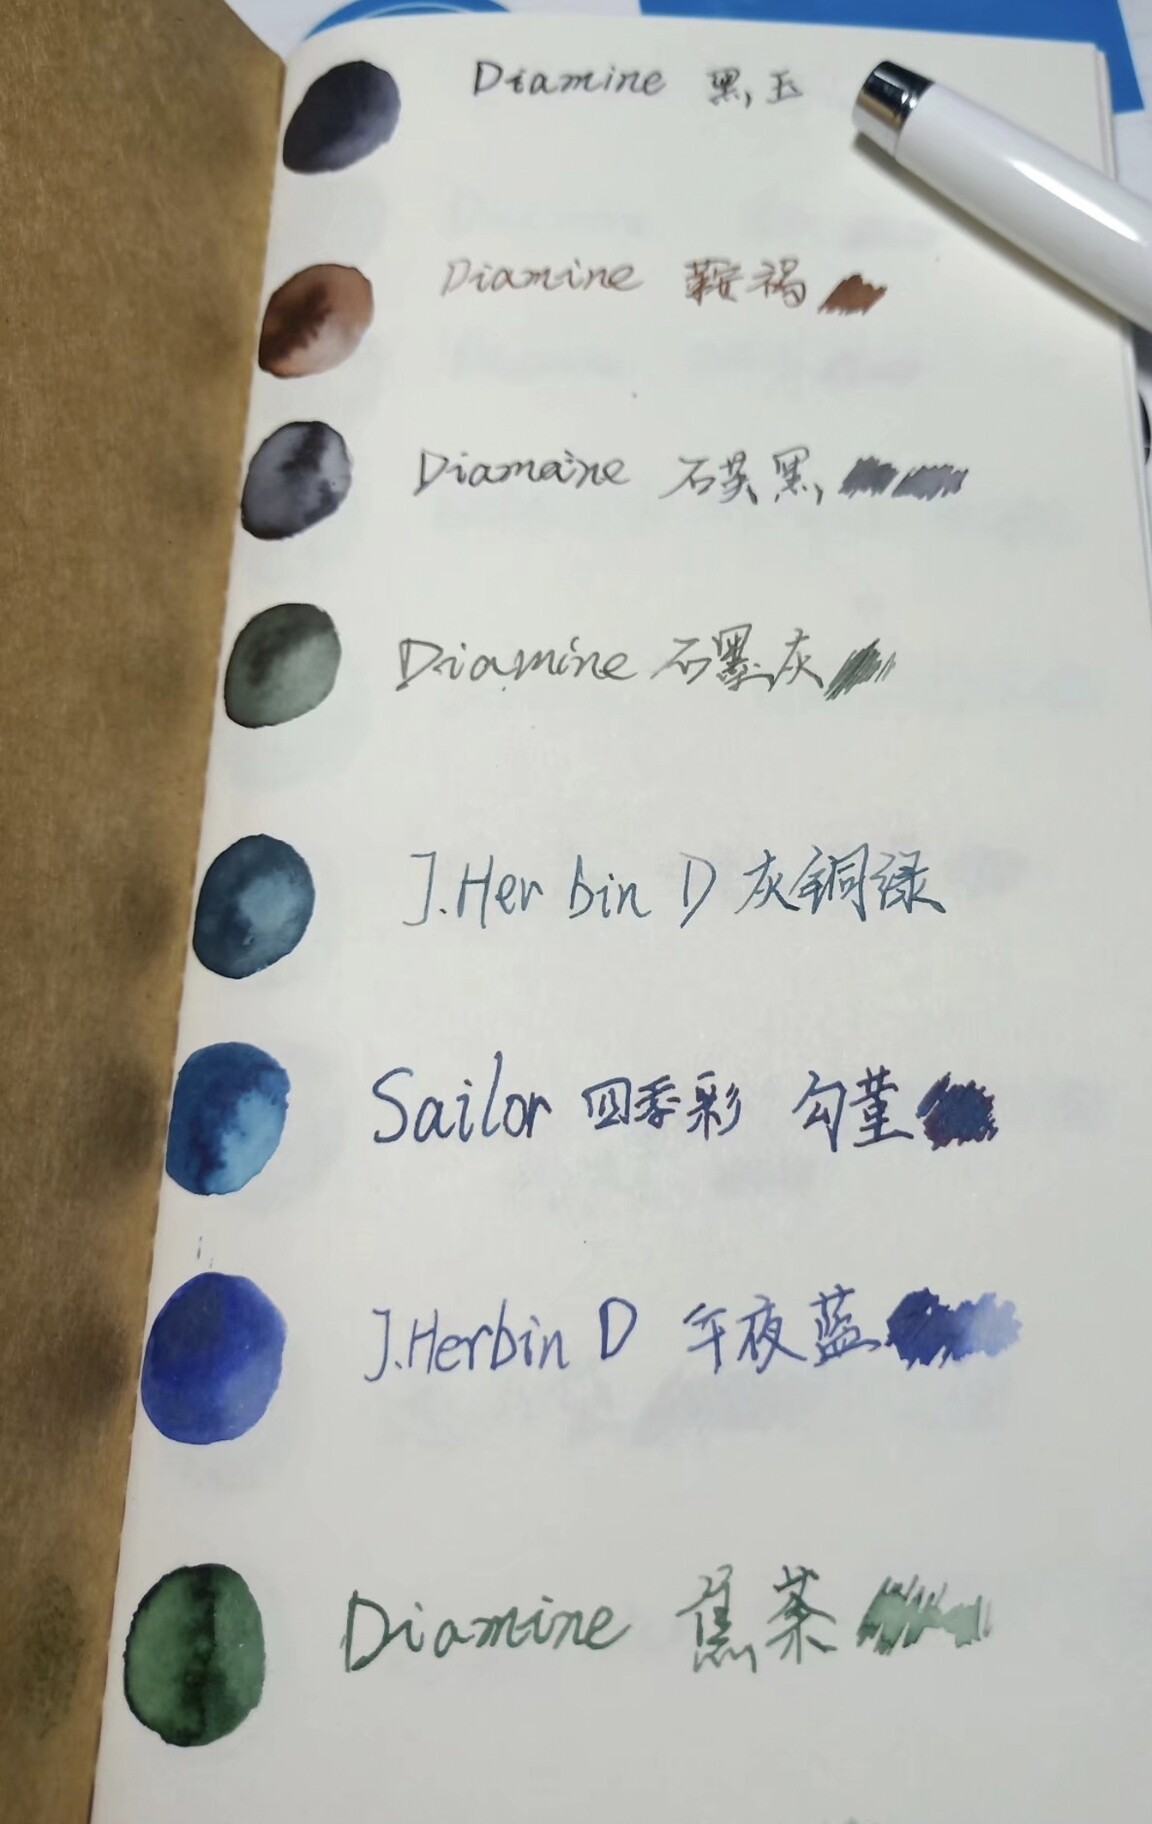 Diamine 黑玉
Diamine 鞍褐
Diamaine 石英黑
Diamine 石墨灰
J.Herbin D 灰铜绿
Sailor 四季彩 勾堇
J.Herbin D 午夜蓝
Diamine 蕉茶